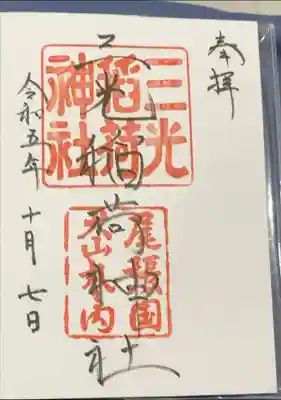 奉拝
三光稲荷神社
三光
稲荷
神社
尾張国
犬山城内
令和五年 十月七日